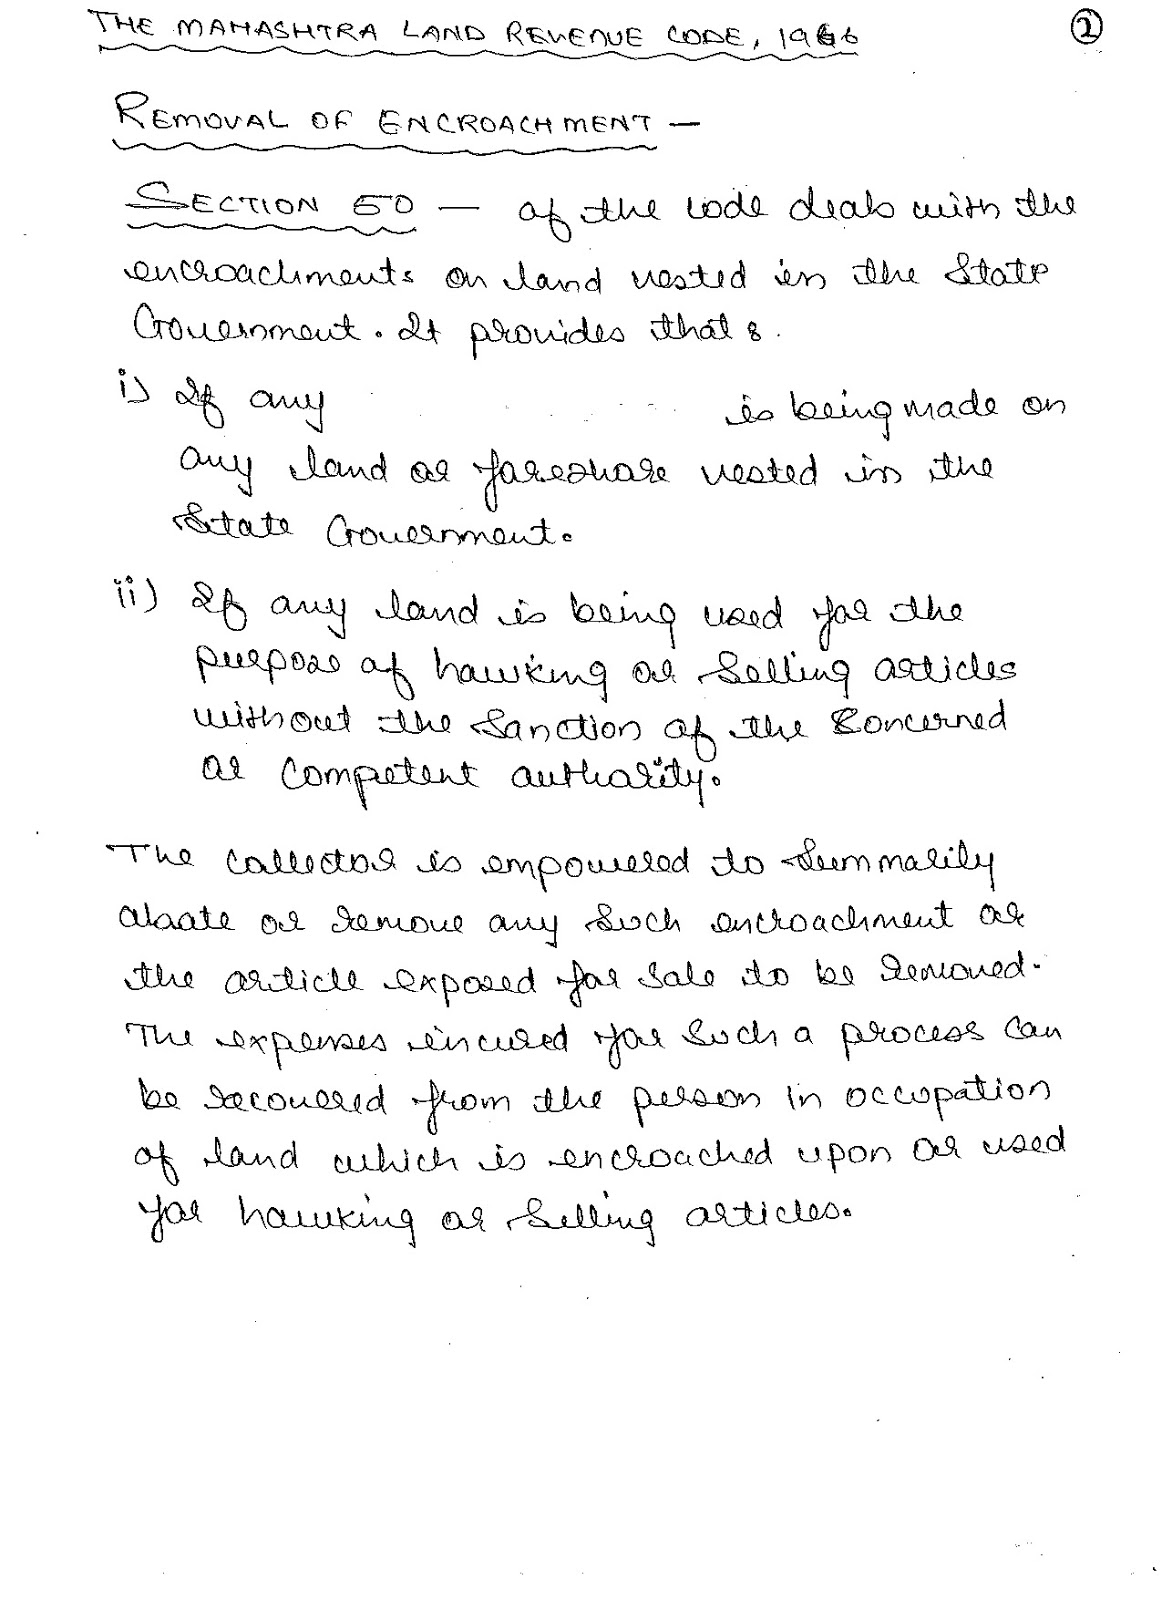 THE MAHASHTRA LAND REVENUE CODE, 1966
②
REMOVAL OF ENCROACHMENT —
SECTION 50 — of the code deals with the
encroachments on land vested in the State
Government. It provides that :
i) If any is being made on
any land or foreshore vested in the
State Government.
ii) If any land is being used for the
purpose of hawking or selling articles
without the sanction of the concerned
or competent authority.
The collector is empowered to summarily
abate or remove any such encroachment or
the article exposed for sale to be removed.
The expenses incured for such a process can
be recovered from the person in occupation
of land which is encroached upon or used
for hawking or selling articles.